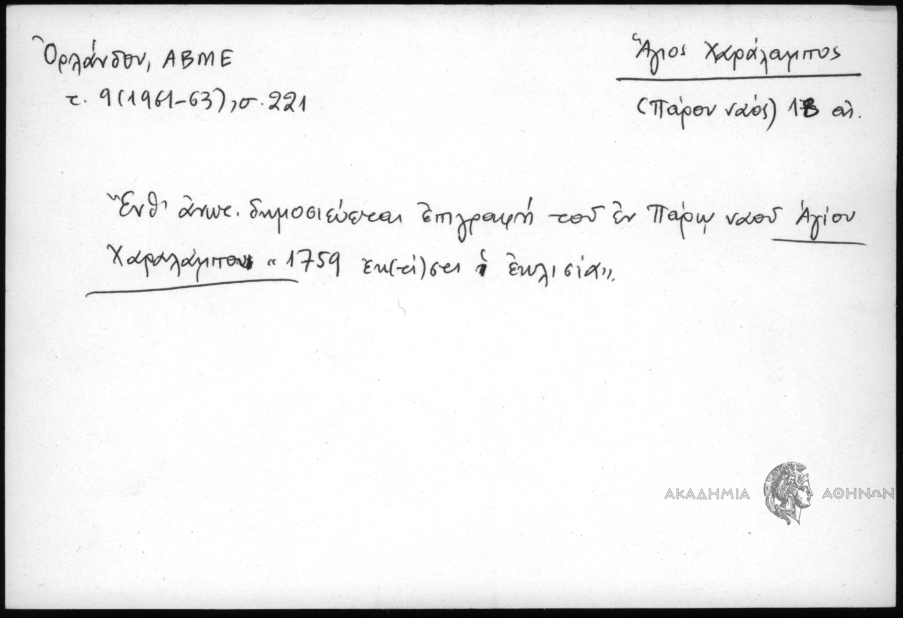 Ὀρλάνδου, ΑΒΜΕ
τ. 9 (1961-63), σ. 221
Ἅγιος Χαράλαμπος
(Πάρου ναός) 18 αἰ.
Ἔνθ' ἀνωτ. δημοσιεύεται ἐπιγραφή τοῦ ἐν Πάρῳ ναοῦ Ἁγίου
Χαραλάμπους « 1759 εκ(τί)σται ἡ ἐκλισία».
ΑΚΑΔΗΜΙΑ ΑΘΗΝΩΝ